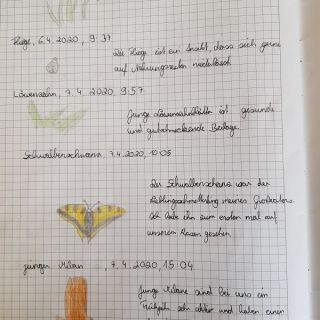 Fliege, 6.4.2020, 9:37
Die Fliege ist ein Insekt, dass sich gerne
auf Nahrungsresten niederlässt.
Löwenzahn, 7.4.2020, 9:57
Junge Löwenzahnblätter ist gesunde
und gutschmeckende Beilage.
Schwalbenschwanz, 7.4.2020, 10:05
Der Schwalbenschwanz war der
Lieblingsschmetterling meines Großvaters.
Ich habe ihn zum ersten mal auf
unserem Rasen gesehen.
junger Milan, 7.4.2020, 15:04
Junge Milane sind bei uns im
Frühjahr sehr aktiv und haben einen